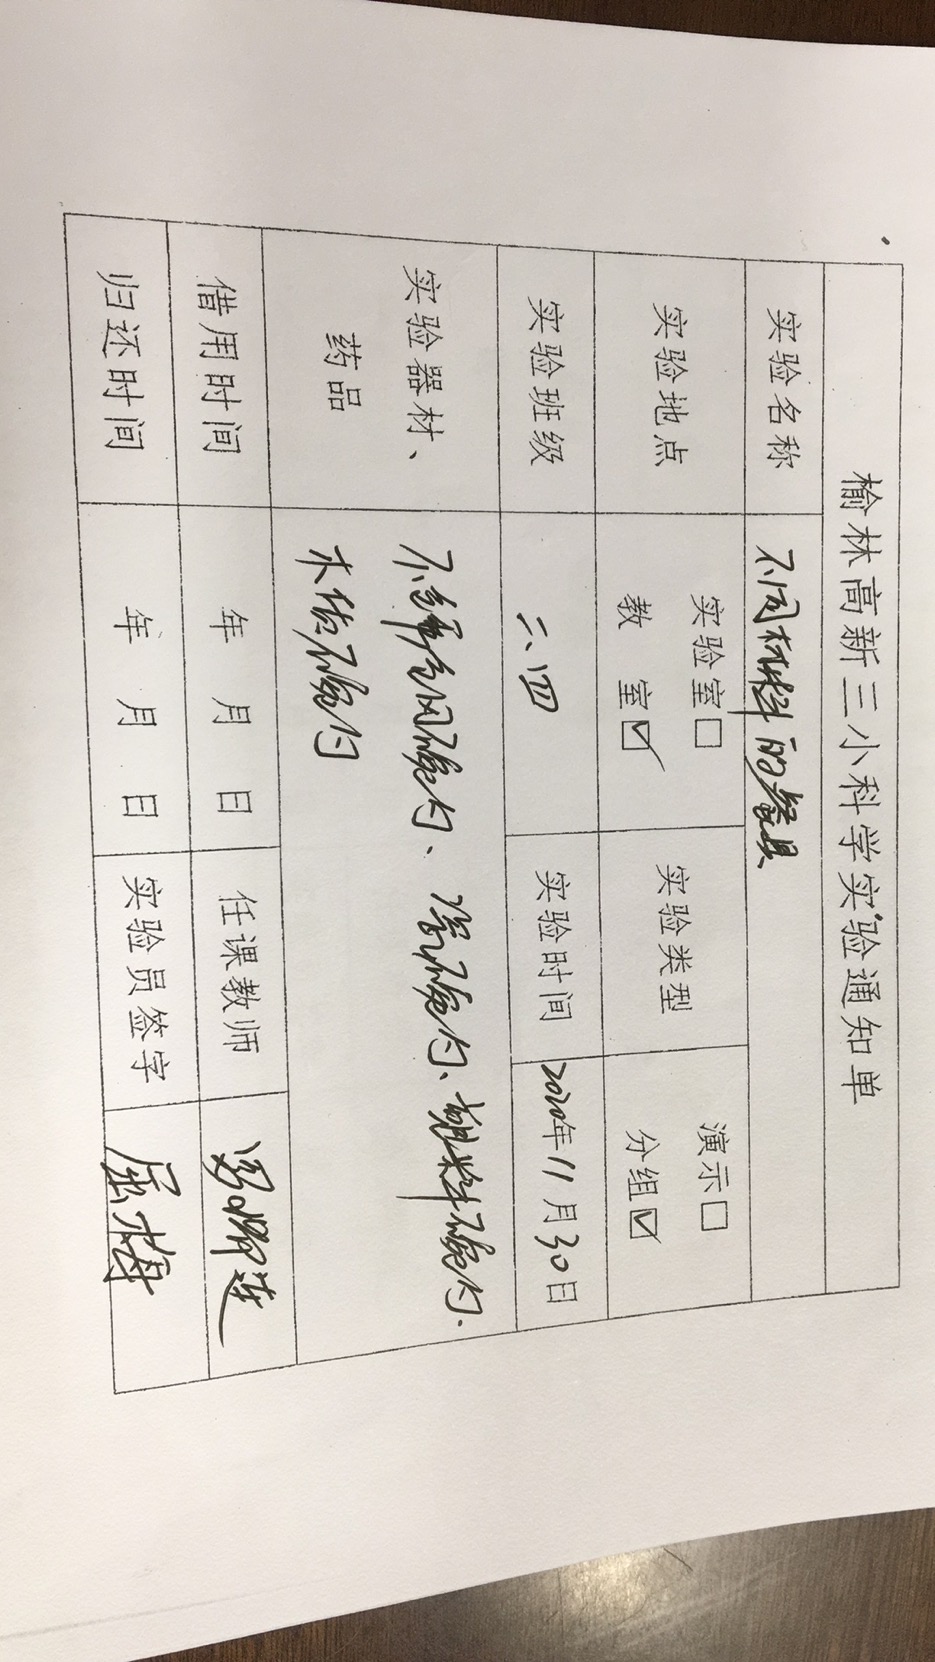 榆林高新三小科学实验通知单
实验名称 不同材料的餐具
实验地点 实验室□ 教 室☑ 实验类型 演示□ 分组☑
实验班级 二、四 实验时间 2020年11月30日
实验器材、药品 不锈钢碗勺、瓷碗勺、塑料碗勺、
木质碗勺
借用时间 年 月 日 任课教师
归还时间 年 月 日 实验员签字 屈梅